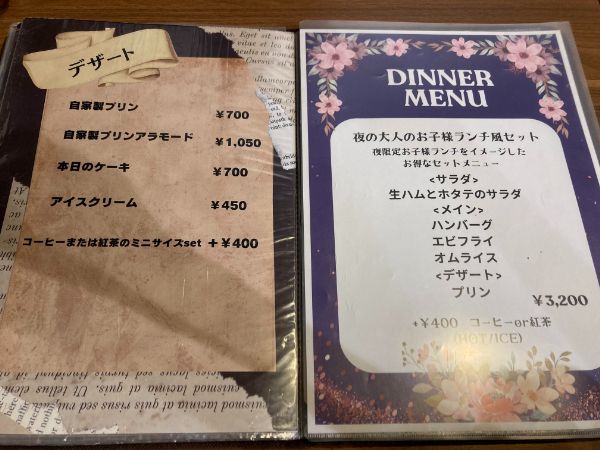 デザート
自家製プリン ¥700
自家製プリンアラモード ¥1,050
本日のケーキ ¥700
アイスクリーム ¥450
コーヒーまたは紅茶のミニサイズset +¥400
DINNER
MENU
夜の大人のお子様ランチ風セット
夜限定お子様ランチをイメージした
お得なセットメニュー
<サラダ>
生ハムとホタテのサラダ
<メイン>
ハンバーグ
エビフライ
オムライス
<デザート>
プリン
¥3,200
+¥400 コーヒーor紅茶
(HOT/ICE)